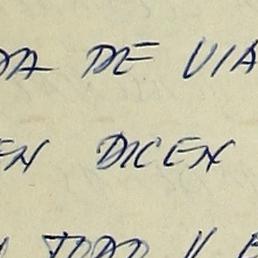 DA DE VIA
EN DICEN
TODO Y